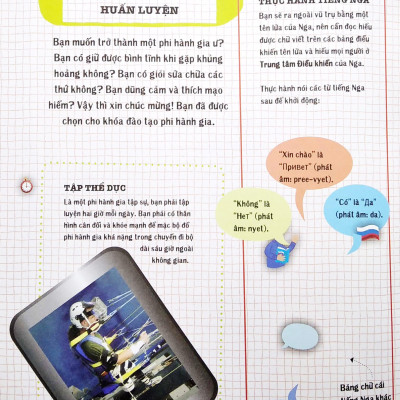 HUẤN LUYỆN
Bạn muốn trở thành một phi hành gia ư?
Bạn có giữ được bình tĩnh khi gặp khủng
hoảng không? Bạn có giỏi sửa chữa các
thứ không? Bạn dũng cảm và thích mạo
hiểm? Vậy thì xin chúc mừng! Bạn đã được
chọn cho khóa đào tạo phi hành gia.
THỰC HÀNH TIẾNG NGA
Bạn sẽ ra ngoài vũ trụ bằng một
tên lửa của Nga, nên cần đọc hiểu
được chữ viết trên các bảng điều
khiển tên lửa và hiểu mọi người ở
Trung tâm Điều khiển của Nga.
Thực hành nói các từ tiếng Nga
sau để khởi động:
"Xin chào" là
"Привет" (phát
âm: pree-vyet).
"Không" là
"Нет" (phát
âm: nyet).
"Có" là "Да"
(phát âm: da).
TẬP THỂ DỤC
Là một phi hành gia tập sự, bạn phải tập
luyện hai giờ mỗi ngày. Bạn phải có thân
hình cân đối và khỏe mạnh để mặc bộ đồ
phi hành gia khá nặng trong chuyến đi bộ
dài sáu giờ ngoài
không gian.
Bảng chữ cái
tiếng Nga khác